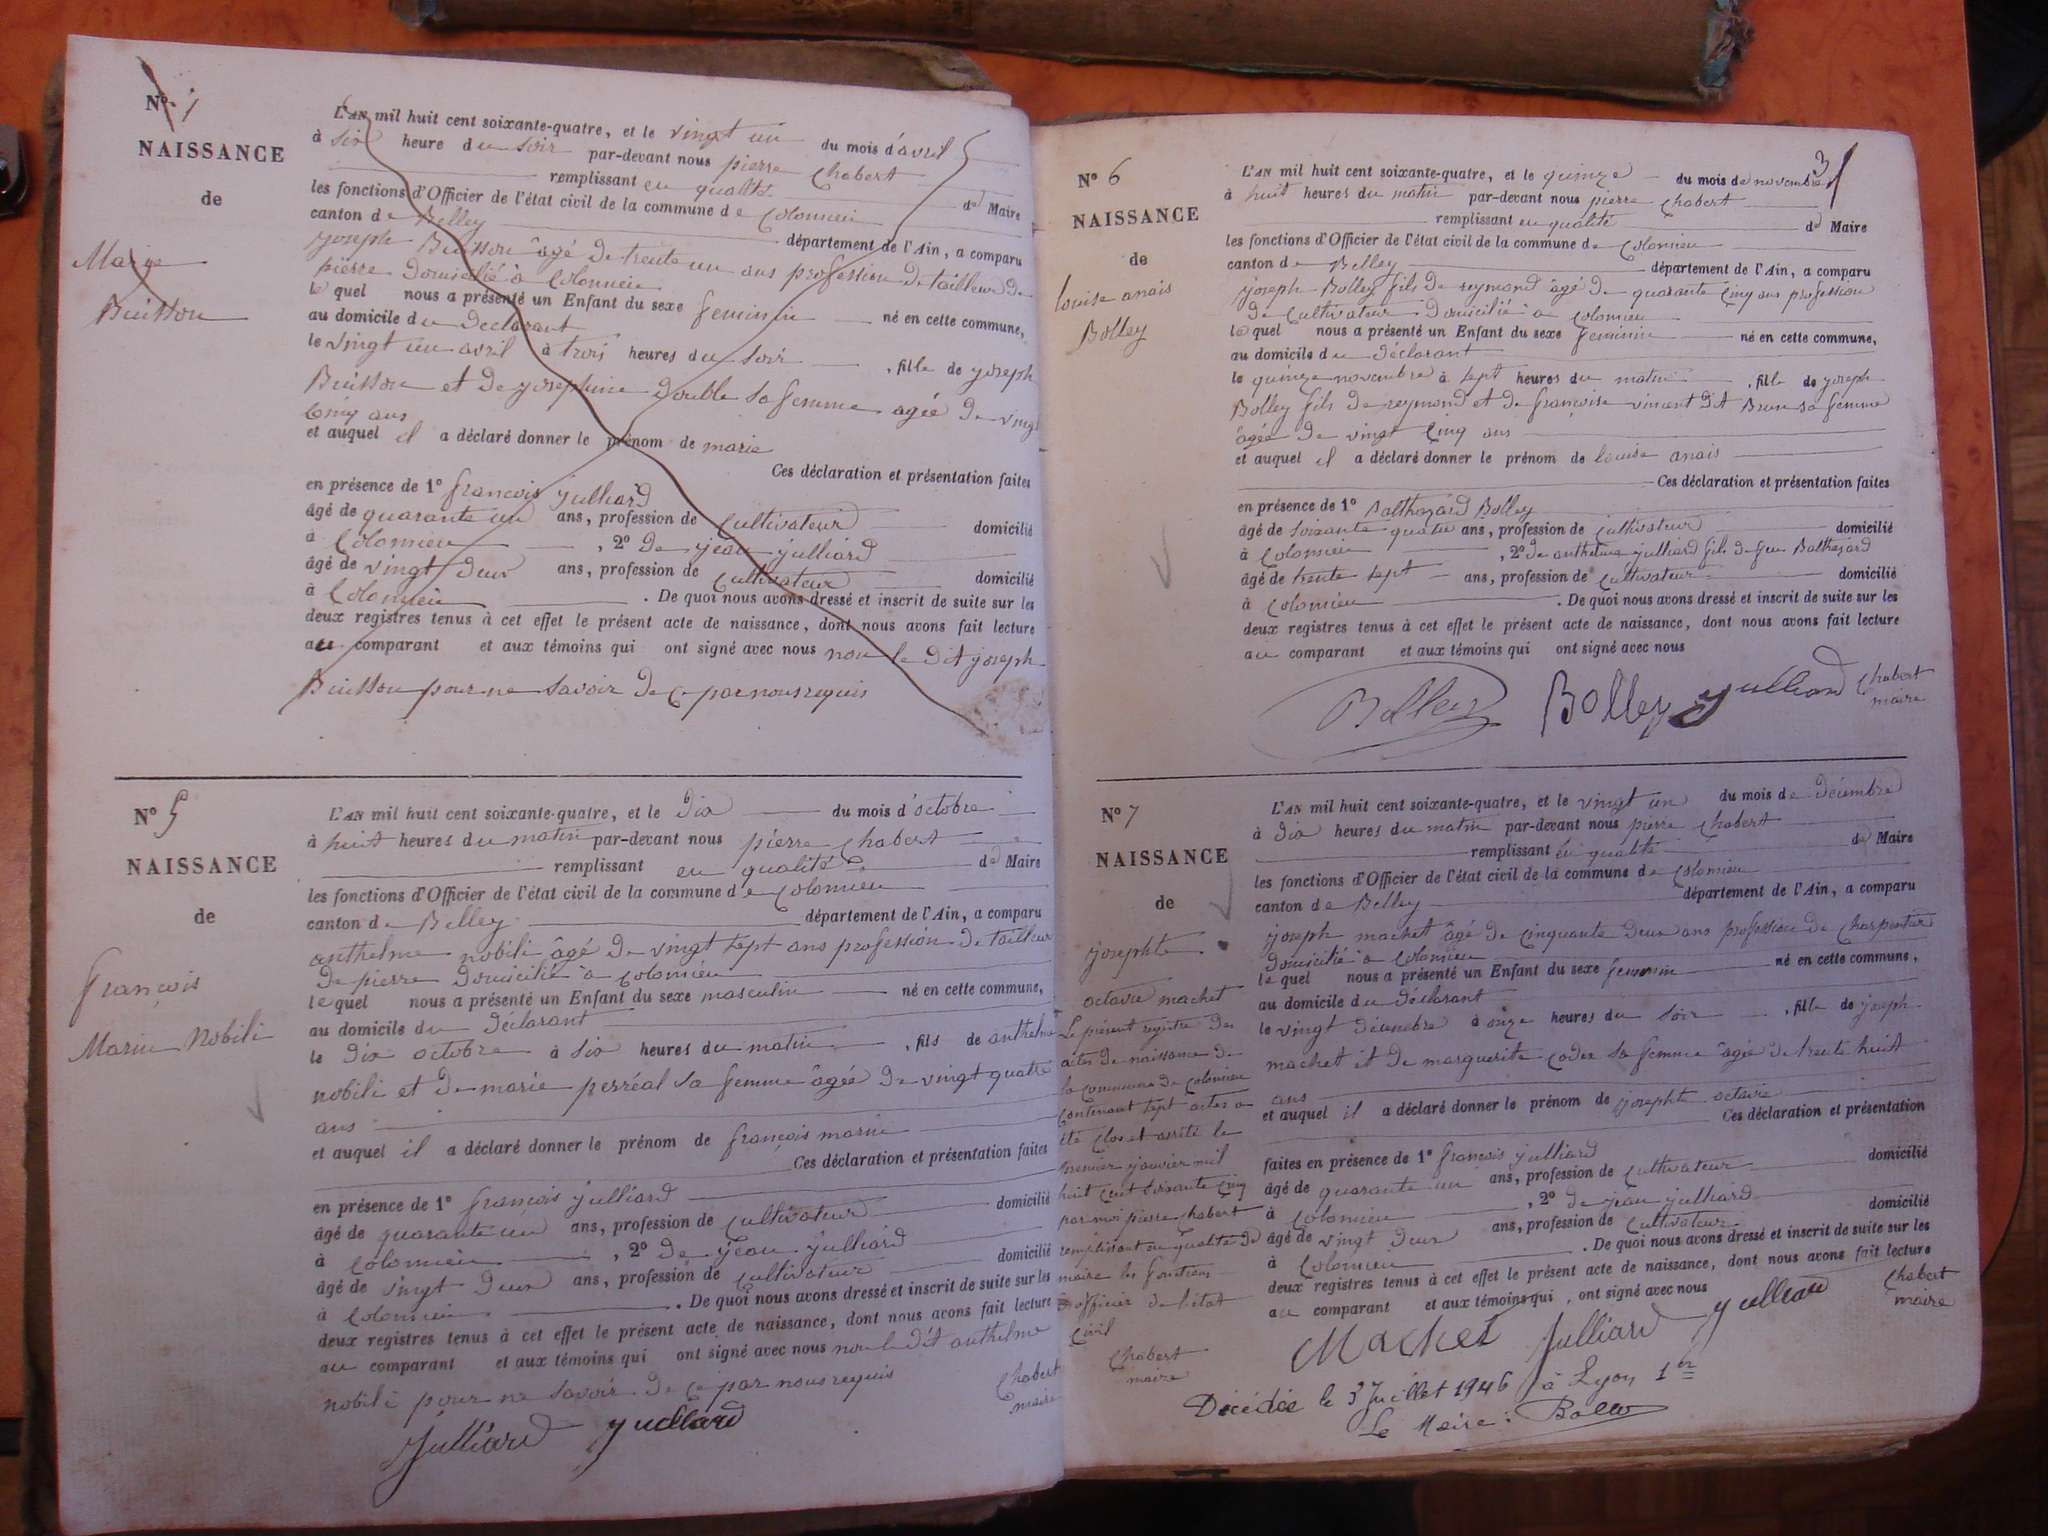 N° 1
NAISSANCE
de
Marie
Buisson
L'AN mil huit cent soixante-quatre, et le vingt un du mois d'avril
à six heure du soir par-devant nous pierre Chabert
remplissant en qualité de Maire
les fonctions d'Officier de l'état civil de la commune de Colomieu
canton de Belley département de l'Ain, a comparu
joseph Buisson âgé de trente un ans profession de tailleur de
pierre domicilié à Colomieu
lequel nous a présenté un Enfant du sexe feminin né en cette commune,
au domicile du declarant
le vingt un avril à trois heures du soir, fille de joseph
Buisson et de josephine Double sa femme agée de vingt
Cinq ans
et auquel il a déclaré donner le prénom de marie
Ces déclaration et présentation faites
en présence de 1° françois julliard
âgé de quarante un ans, profession de Cultivateur domicilié
à Colomieu, 2° de jean julliard
âgé de vingt deux ans, profession de Cultivateur domicilié
à Colomieu. De quoi nous avons dressé et inscrit de suite sur les
deux registres tenus à cet effet le présent acte de naissance, dont nous avons fait lecture
au comparant et aux témoins qui ont signé avec nous non le dit joseph
Buisson pour ne savoir de ce par nous requis
N° 5
NAISSANCE
de
françois
Marin Nobili
L'AN mil huit cent soixante-quatre, et le dix du mois d'octobre
à huit heures du matin par-devant nous pierre Chabert
remplissant en qualité de Maire
les fonctions d'Officier de l'état civil de la commune de Colomieu
canton de Belley département de l'Ain, a comparu
anthelme nobili âgé de vingt sept ans profession de tailleur
de pierre domicilié à Colomieu
lequel nous a présenté un Enfant du sexe masculin né en cette commune,
au domicile du déclarant
le dix octobre à six heures du matin, fils de anthelme
nobili et de marie perréal sa femme âgée de vingt quatre
ans
et auquel il a déclaré donner le prénom de françois marin
Ces déclaration et présentation faites
en présence de 1° françois julliard
âgé de quarante un ans, profession de Cultivateur domicilié
à Colomieu, 2° de jean julliard
âgé de vingt deux ans, profession de Cultivateur domicilié
à Colomieu. De quoi nous avons dressé et inscrit de suite sur les
deux registres tenus à cet effet le présent acte de naissance, dont nous avons fait lecture
au comparant et aux témoins qui ont signé avec nous non le dit anthelme
nobili pour ne savoir de ce par nous requis
Chabert
maire
Julliard julliard
3
N° 6
NAISSANCE
de
louise anais
Bolley
L'AN mil huit cent soixante-quatre, et le quinze du mois de novembre
à huit heures du matin par-devant nous pierre Chabert
remplissant en qualité de Maire
les fonctions d'Officier de l'état civil de la commune de Colomieu
canton de Belley département de l'Ain, a comparu
joseph Bolley fils de reymond âgé de quarante Cinq ans profession
de Cultivateur domicilié à Colomieu
lequel nous a présenté un Enfant du sexe feminin né en cette commune,
au domicile du déclarant
le quinze novembre à sept heures du matin, fille de joseph
Bolley fils de reymond et de françoise vincent dit Brun sa femme
âgée de vingt Cinq ans
et auquel il a déclaré donner le prénom de louise anais
Ces déclaration et présentation faites
en présence de 1° Balthazard Bolley
âgé de soixante quatre ans, profession de Cultivateur domicilié
à Colomieu, 2° de anthelme julliard fils de feu Balthazard
âgé de trente sept ans, profession de Cultivateur domicilié
à Colomieu. De quoi nous avons dressé et inscrit de suite sur les
deux registres tenus à cet effet le présent acte de naissance, dont nous avons fait lecture
au comparant et aux témoins qui ont signé avec nous
Bolley Bolley julliard Chabert
maire
N° 7
NAISSANCE
de
josephte
octavie machet
Le présent registre des
actes de naissance de
la commune de Colomieu
contenant sept actes a
été clos et arrêté le
premier janvier mil
huit cent soixante cinq
par moi pierre Chabert
remplissant en qualité de
maire les fonctions
d'officier de l'état
Civil
Chabert
maire
L'AN mil huit cent soixante-quatre, et le vingt un du mois de décembre
à dix heures du matin par-devant nous pierre Chabert
remplissant en qualité de Maire
les fonctions d'Officier de l'état civil de la commune de Colomieu
canton de Belley département de l'Ain, a comparu
joseph machet âgé de cinquante deux ans profession de Charpentier
domicilié à Colomieu
lequel nous a présenté un Enfant du sexe feminin né en cette commune,
au domicile du déclarant
le vingt décembre à onze heures du soir, fille de joseph
machet et de marguerite Coder sa femme âgée de trente huit
ans
et auquel il a déclaré donner le prénom de josephte octavie
Ces déclaration et présentation
faites en présence de 1° françois julliard
âgé de quarante un ans, profession de Cultivateur domicilié
à Colomieu, 2° de jean julliard
âgé de vingt deux ans, profession de Cultivateur domicilié
à Colomieu. De quoi nous avons dressé et inscrit de suite sur les
deux registres tenus à cet effet le présent acte de naissance, dont nous avons fait lecture
au comparant et aux témoins qui, ont signé avec nous
Machet Julliard julliard Chabert
maire
Décédée le 3 Juillet 1946 à Lyon 1er
Le Maire: